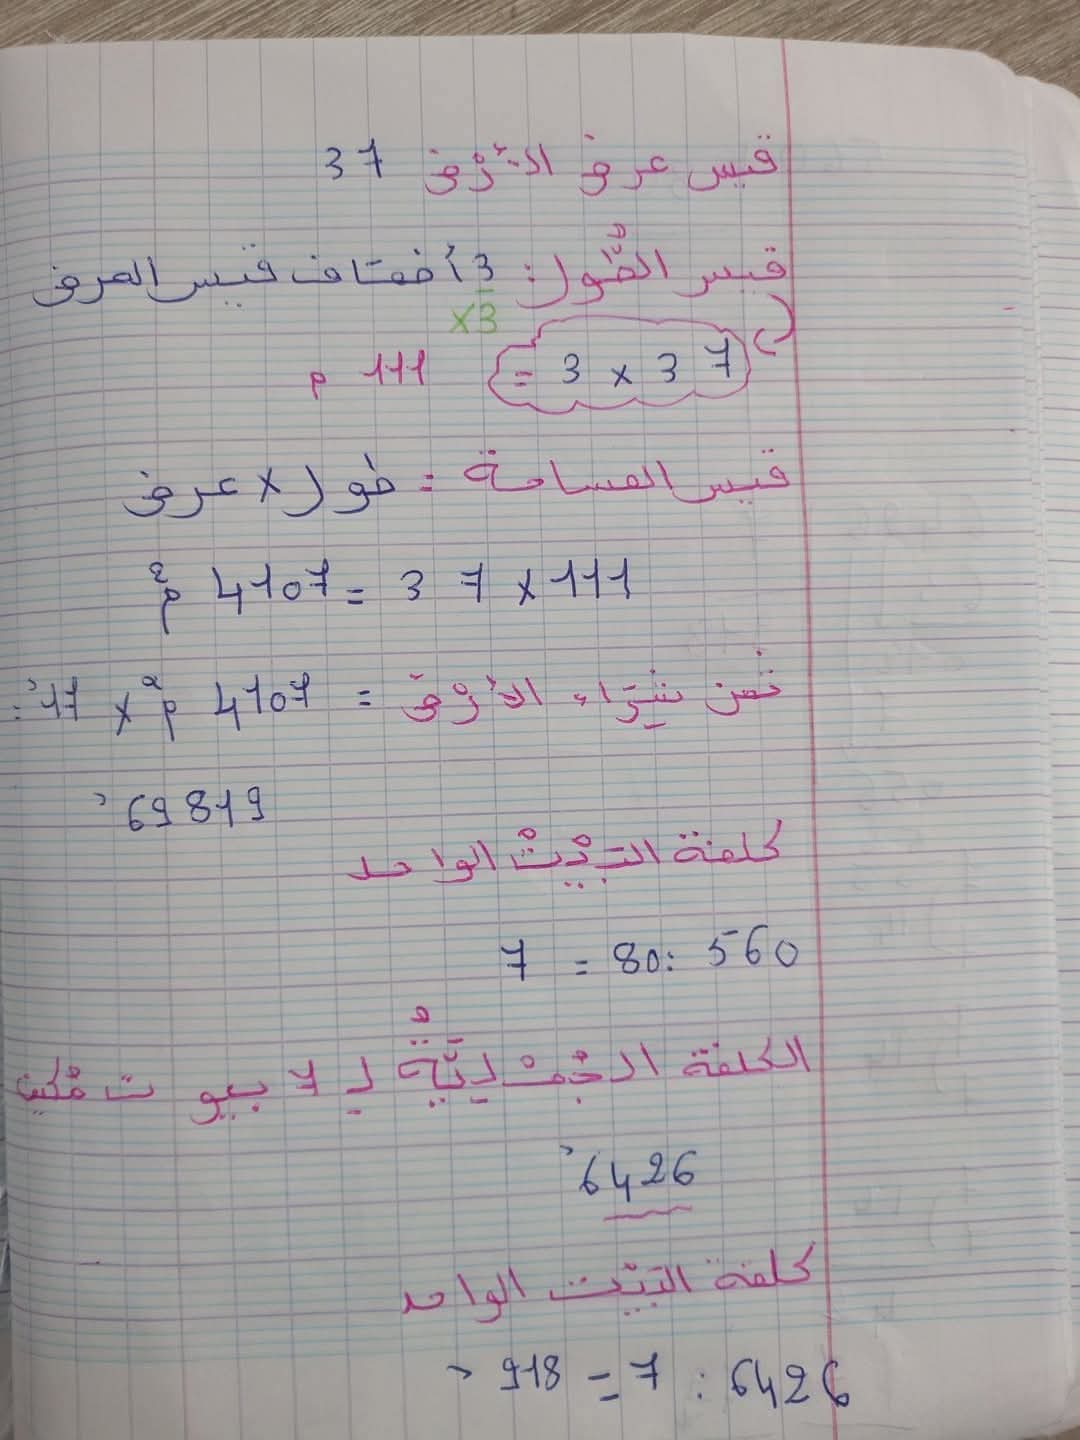 قيس عرض الأرض 37
قيس الطّول: 3 أضعاف قيس العرض
×3
37 × 3 = 111 م
قيس المساحة = طول × عرض
111 × 37 = 4107 م²
ثمن شراء الأرض = 4107 م² × 17د =
69819د
كلفة البيْتْ الواحد
560 : 80 = 7
الكلفة الجُمْليّةُ لـ 7 بيوت
6426د
كلفة البيْت الواحد
6426 : 7 = 918د